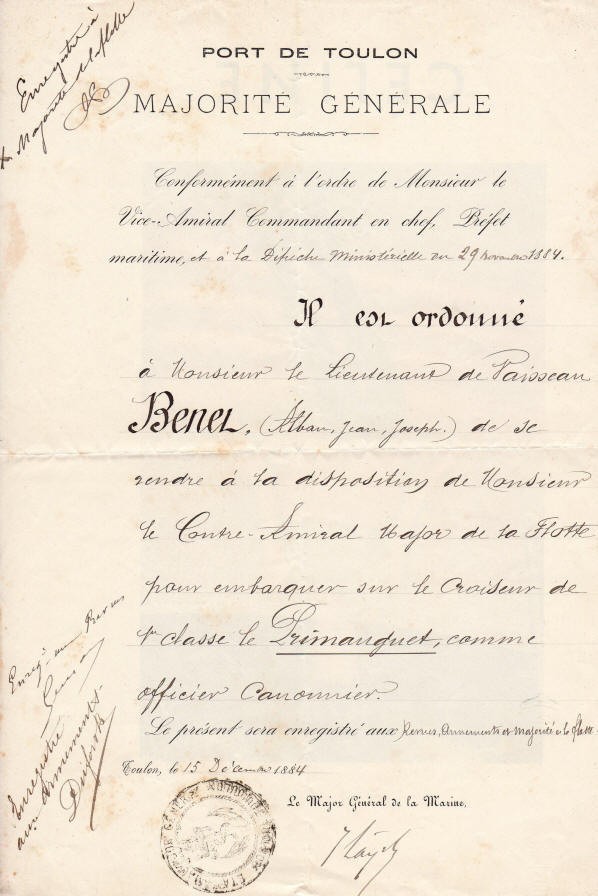 Enregistré à
la Majorité de la flotte
PORT DE TOULON
MAJORITÉ GÉNÉRALE
Conformément à l'ordre de Monsieur le
Vice-Amiral Commandant en chef, Préfet
maritime, et à la Dépêche Ministérielle du 29 novembre 1884.
Il est ordonné
à Monsieur le Lieutenant de Vaisseau
Benet, (Alban, Jean, Joseph.) de se
rendre à la disposition de Monsieur
le Contre-Amiral Major de la Flotte
pour embarquer sur le Croiseur de
1re classe le Primauguet, comme
officier Canonnier.
Le présent sera enregistré aux Revues, Armements et majorité de la flotte.
Toulon, le 15 Décembre 1884
Le Major Général de la Marine,
Enregé aux Revues
Enregistré
aux Armements